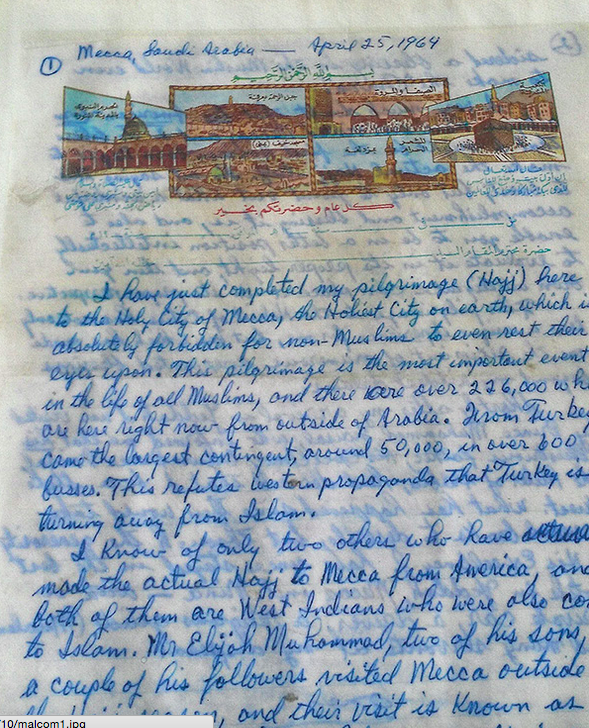 Mecca, Saudi Arabia — April 25, 1964
①
بسم الله الرحمن الرحيم
الحرم النبوي
بالمدينة المنورة
جبل الرحمة بعرفة
الصفا والمروة
مسجد خيف (بمنى)
المشعر
كل عام وحضرتكم بخير
I have just completed my pilgrimage (Hajj) here
to the Holy City of Mecca, the Holiest City on earth, which i
absolutely forbidden for non-Muslims to even rest their
eyes upon. This pilgrimage is the most important event
in the life of all Muslims, and there were over 226,000 wh
are here right now from outside of Arabia. From Turkey
came the largest contingent, around 50,000, in over 600
busses. This refutes western propaganda that Turkey is
turning away from Islam.
I know of only two others who have actua
made the actual Hajj to Mecca from America, and
both of them are West Indians who were also con
to Islam. Mr Elijah Muhammad, two of his sons,
a couple of his followers visited Mecca outside
and their visit is known as
10/malcom1.jpg